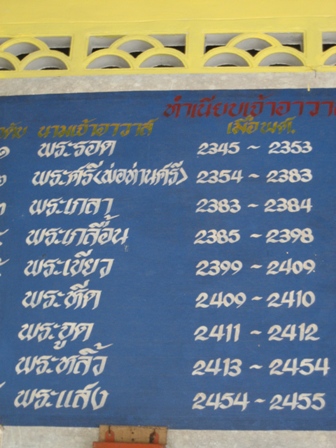 ทำเนียบเจ้าอาวาส
นามเจ้าอาวาส เมื่อ พ.ศ.
๑ พระรอด 2345 ~ 2353
๒ พระศรี(พ่อท่านศรี) 2354 ~ 2383
๓ พระเกลา 2383 ~ 2384
พระเกลื่อน 2385 ~ 2398
พระเขียว 2399 ~ 2409
พระหีด 2409 ~ 2410
พระอูด 2411 ~ 2412
พระหลิ้ว 2413 ~ 2454
พระแสง 2454 ~ 2455